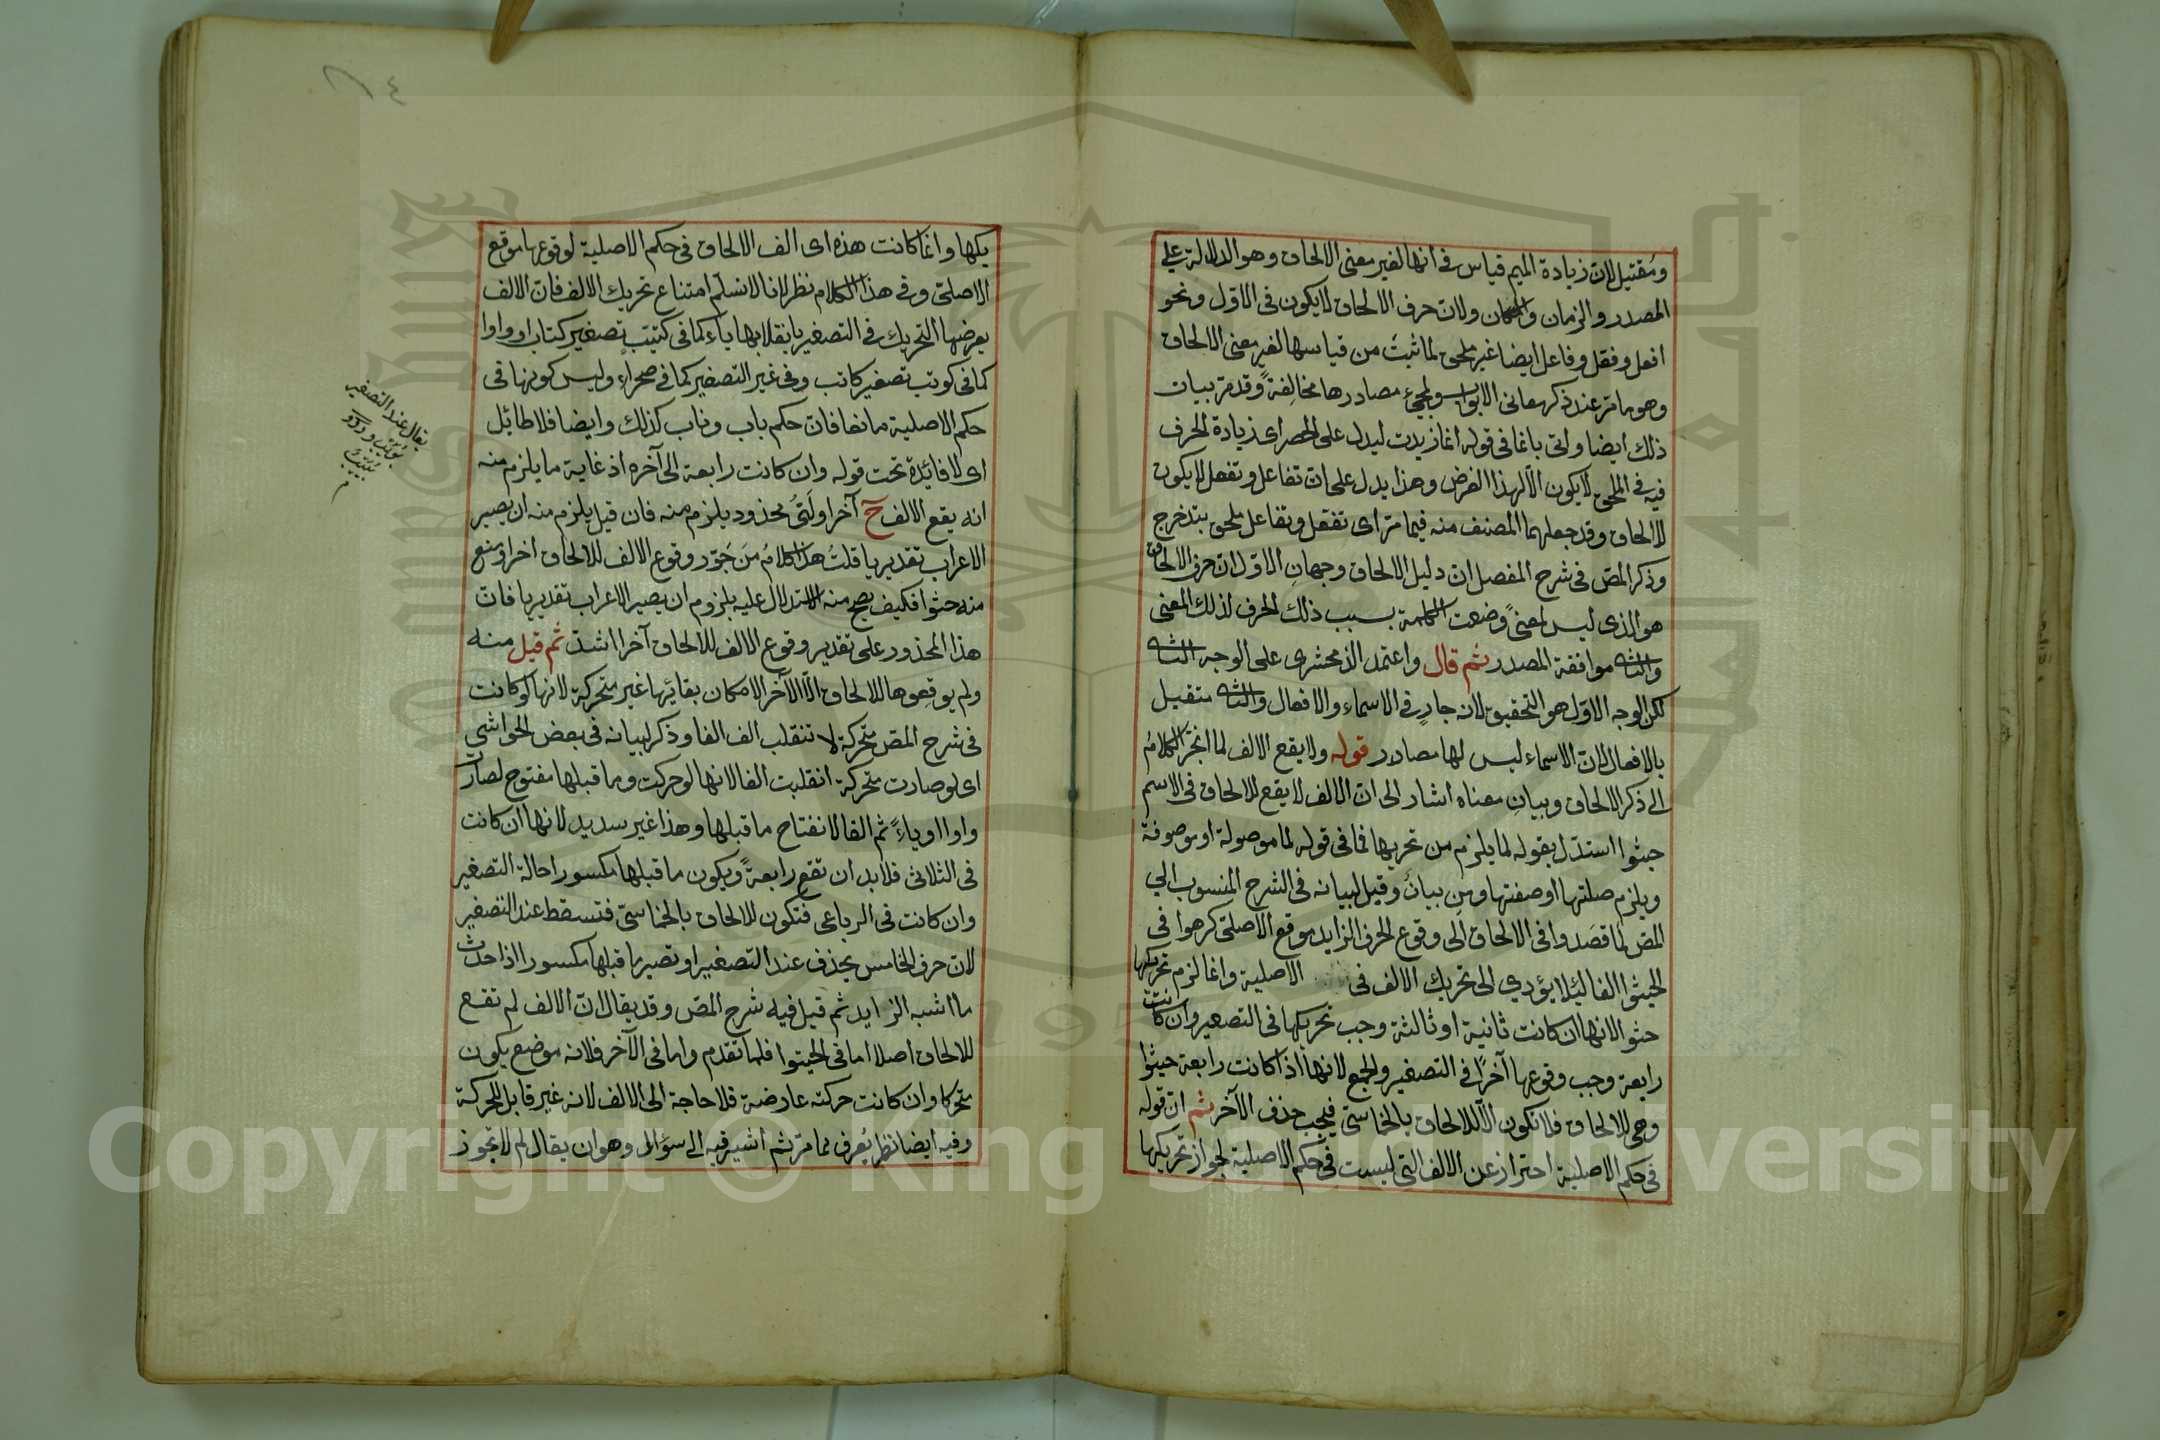 ومقتيل لان زيادة الميم قياس في انها لغير معنى الالحاق وهو الدلالة على
المصدر والزمان والمكان ولان حرف الالحاق لا يكون في الاول ونحو
افعل وفعّل وفاعل ايضا غير ملحق لما ثبت من قياسها لغير معنى الالحاق
وهو ما مر عند ذكر معاني الابواب ولمجيء مصادرها مخالفة وقد مر بيان
ذلك ايضا واتى بانما في قوله انما زيدت ليدل على الحصر اى زيادة الحرف
فيه في الملحق لا يكون الا لهذا الغرض وهذا يدل على ان تفاعل وتفعل لا يكون
للالحاق وقد جعلهما المصنف منه فيما مر اى تفعّل وتفاعل ملحق بتدخرج
وذكر المص في شرح المفصل ان دليل الالحاق وجهان الاول ان حرف الالحاق
هو الذى ليس لمعنىً وضعت الكلمة بسبب ذلك الحرف لذلك المعنى
والثانى موافقة المصدر ثم قال واعتمد الزمخشرى على الوجه الثانى
لكن الوجه الاول هو التحقيق لانه جارٍ في الاسماء والافعال والثانى
بالافعال لان الاسماء ليس لها مصادر قوله ولا يقع الالف لما انجر الكلام
الى ذكر الالحاق وبيان معناه اشار الى ان الالف لا يقع للالحاق في الاسم
حشوا استدل بقوله لما يلزم من تحريكها فما في قوله لما موصولة او موصوفة
ويلزم صلتها او صفتها ومن بيان وقيل لبيانه في الشرح المنسوب الى
المص لما قصدوا في الالحاق الى وقوع الحرف الزايد موقع الاصلى كرهوا في
الحشو الفا لئلا يؤدي الى تحريك الالف في الاصلية وانما لزم تحريكها
حشوا لانها ان كانت ثانية او ثالثة وجب تحريكها في التصغير وان كانت
رابعة وجب وقوعها آخرًا في التصغير والجمع لانها اذا كانت رابعة حشوا
وهى للالحاق فلا تكون الا للالحاق بالخماسى فيجب حذف الآخر ثم ان قوله
في حكم الاصلية احتراز عن الالف التى ليست في حكم الاصلية لجواز تحريكها
يكها وانما كانت هذه اى الف الالحاق في حكم الاصلية لوقوعها موقع
الاصلى وفي هذا الكلام نظر لانا لا نسلم امتناع تحريك الالف فان الالف
يعرضها التحريك في التصغير بانقلابها ياء كما في كتيّب تصغير كتاب او واوا
كما في كويتب تصغير كاتب وفي غير التصغير كما في صحراء وليس كونها في
حكم الاصلية مانعا فان حكم باب وناب كذلك وايضا فلا طائل
اى لا فائدة تحت قوله وان كانت رابعة الى آخره اذ غاية ما يلزم منه
انه يقع الالف ح آخرا ولتىُّ محذور يلزم منه فان قيل يلزم منه ان يصير
الاعراب تقديريا قلتُ هذا كلامُ من جوّز وقوع الالف للالحاق اخرا ومنع
منه حشوا فكيف يصح منه الاستدلال عليه بلزوم ان يصير الاعراب تقديريا فان
هذا المحذور على تقدير وقوع الالف للالحاق آخرا اشد ثم قيل منه
ولم يوقعوها للالحاق الا الآخر الامكان بقائها غير متحركة لانها لو كانت
في شرح المص متحركة لا تنقلب الف الفا وذكر لبيانه في بعض الحواشي
اى لو صارت متحركة انقلبت الفا لانها لو حركت وما قبلها مفتوح لصارت
واوا او ياءً ثم الفا لانفتاح ما قبلها وهذا غير سديد لانها ان كانت
في الثلاثى فلا بد ان تقع رابعةً ويكون ما قبلها مكسورا حالة التصغير
وان كانت في الرباعى فتكون للالحاق بالخماسىّ فتسقط عند التصغير
لان حرف الخامس يحذف عند التصغير او تصير ما قبلها مكسورا اذا حذف
ما اشبه الزايد ثم قيل فيه شرح المص وقد يقال ان الالف لم تقع
للالحاق اصلا اما في الحشو فلما تقدم واما في الآخر فلانه موضع يكون
متحركا وان كانت حركته عارضة فلا حاجة الى الالف لانه غير قابل للحركة
وفيه ايضا نظر يُعرف مما مر ثم اشير فيه الى سؤال وهو ان يقال لم لا تجوز
يقال عند التصغير